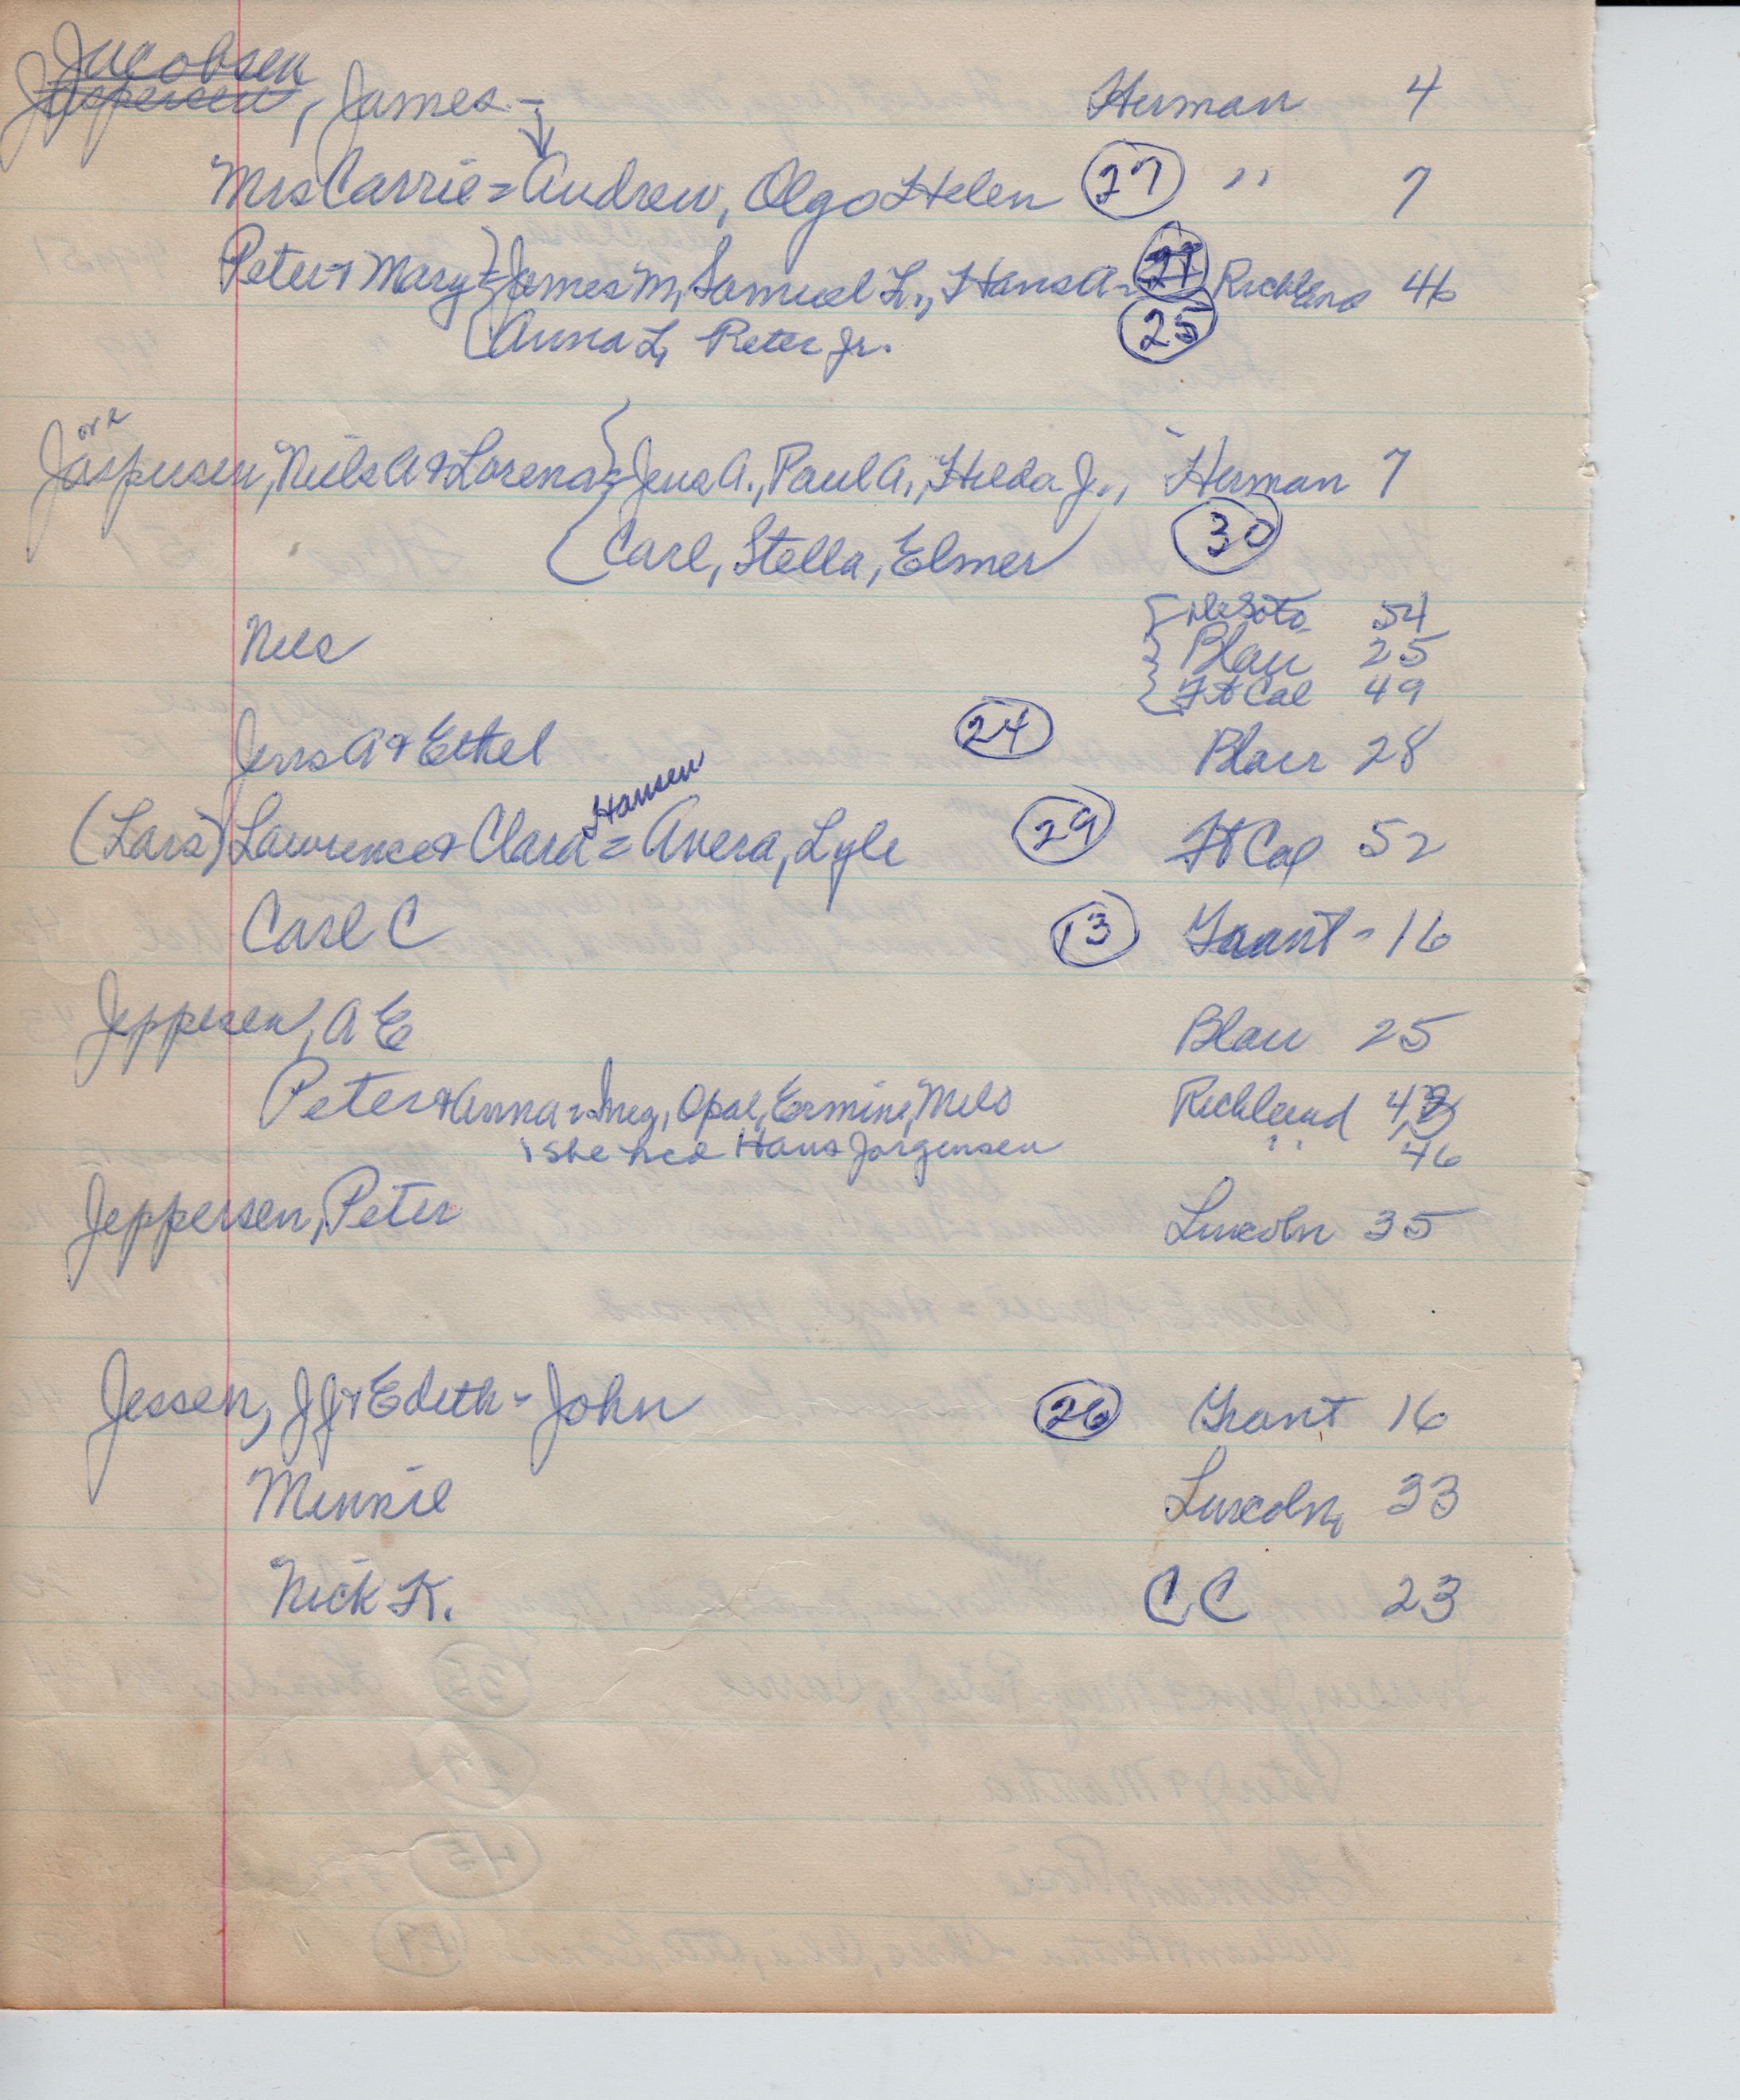 Jacobsen
Jaspersen, James - Herman 4
Mrs Carrie = Andrew, Olgo Helen (27) " 7
Peter & Mary = James M, Samuel L., Hans A - 27 Richland 46
Anna L, Peter Jr. (25)
or e
Jaspersen, Niels A & Lorena = Jens A., Paul A., Hilda J., Herman 7
Carl, Stella, Elmer (30)
DeSoto 54
Nels Blair 25
Ft Cal 49
Jens A & Ethel (24) Blair 28
Hansen
(Lars) Lawrence & Clara = Avera, Lyle (29) Ft Cal 52
Carl C (13) Grant - 16
Jeppesen, A E Blair 25
Peter & Anna = Inez, Opal, Ermine, Milo Richland 43
she heo Hans Jorgensen " 46
Jeppersen, Peter Lincoln 35
Jessen, J J & Edith - John (26) Grant 16
Minnie Lincoln 33
Nick K. CC 23